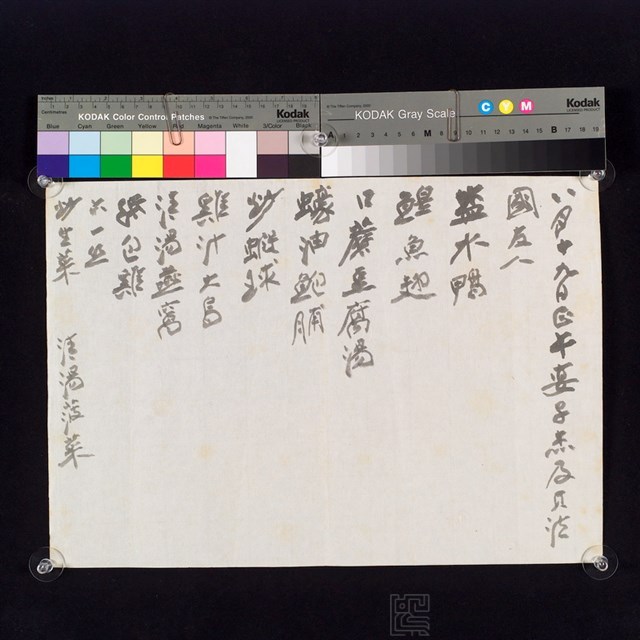 八月十九日正午宴子杰及貝法
國友人
盐水鴨
䱇魚翅
口蘑豆腐湯
蠔油鮑脯
炒蝦球
雞汁大烏
清湯燕窩
紙包雞
六一絲
炒生菜 清湯菠菜
KODAK Color Control Patches
Kodak
KODAK Gray Scale
Kodak
LICENSED PRODUCT
Inches
Centimetres
Blue Cyan Green Yellow Red Magenta White 3/Color Black
A 1 2 3 4 5 6 M 8 9 10 11 12 13 14 15 B 17 18 19
C Y M